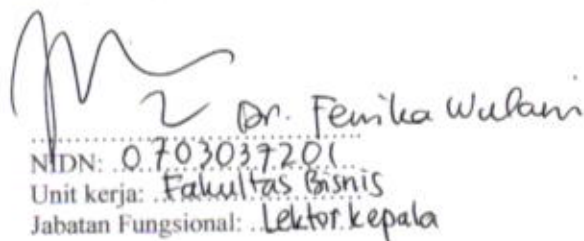 Dr. Fenika Wulani
NIDN: 0703037201
Unit kerja: Fakultas Bisnis
Jabatan Fungsional: Lektor kepala